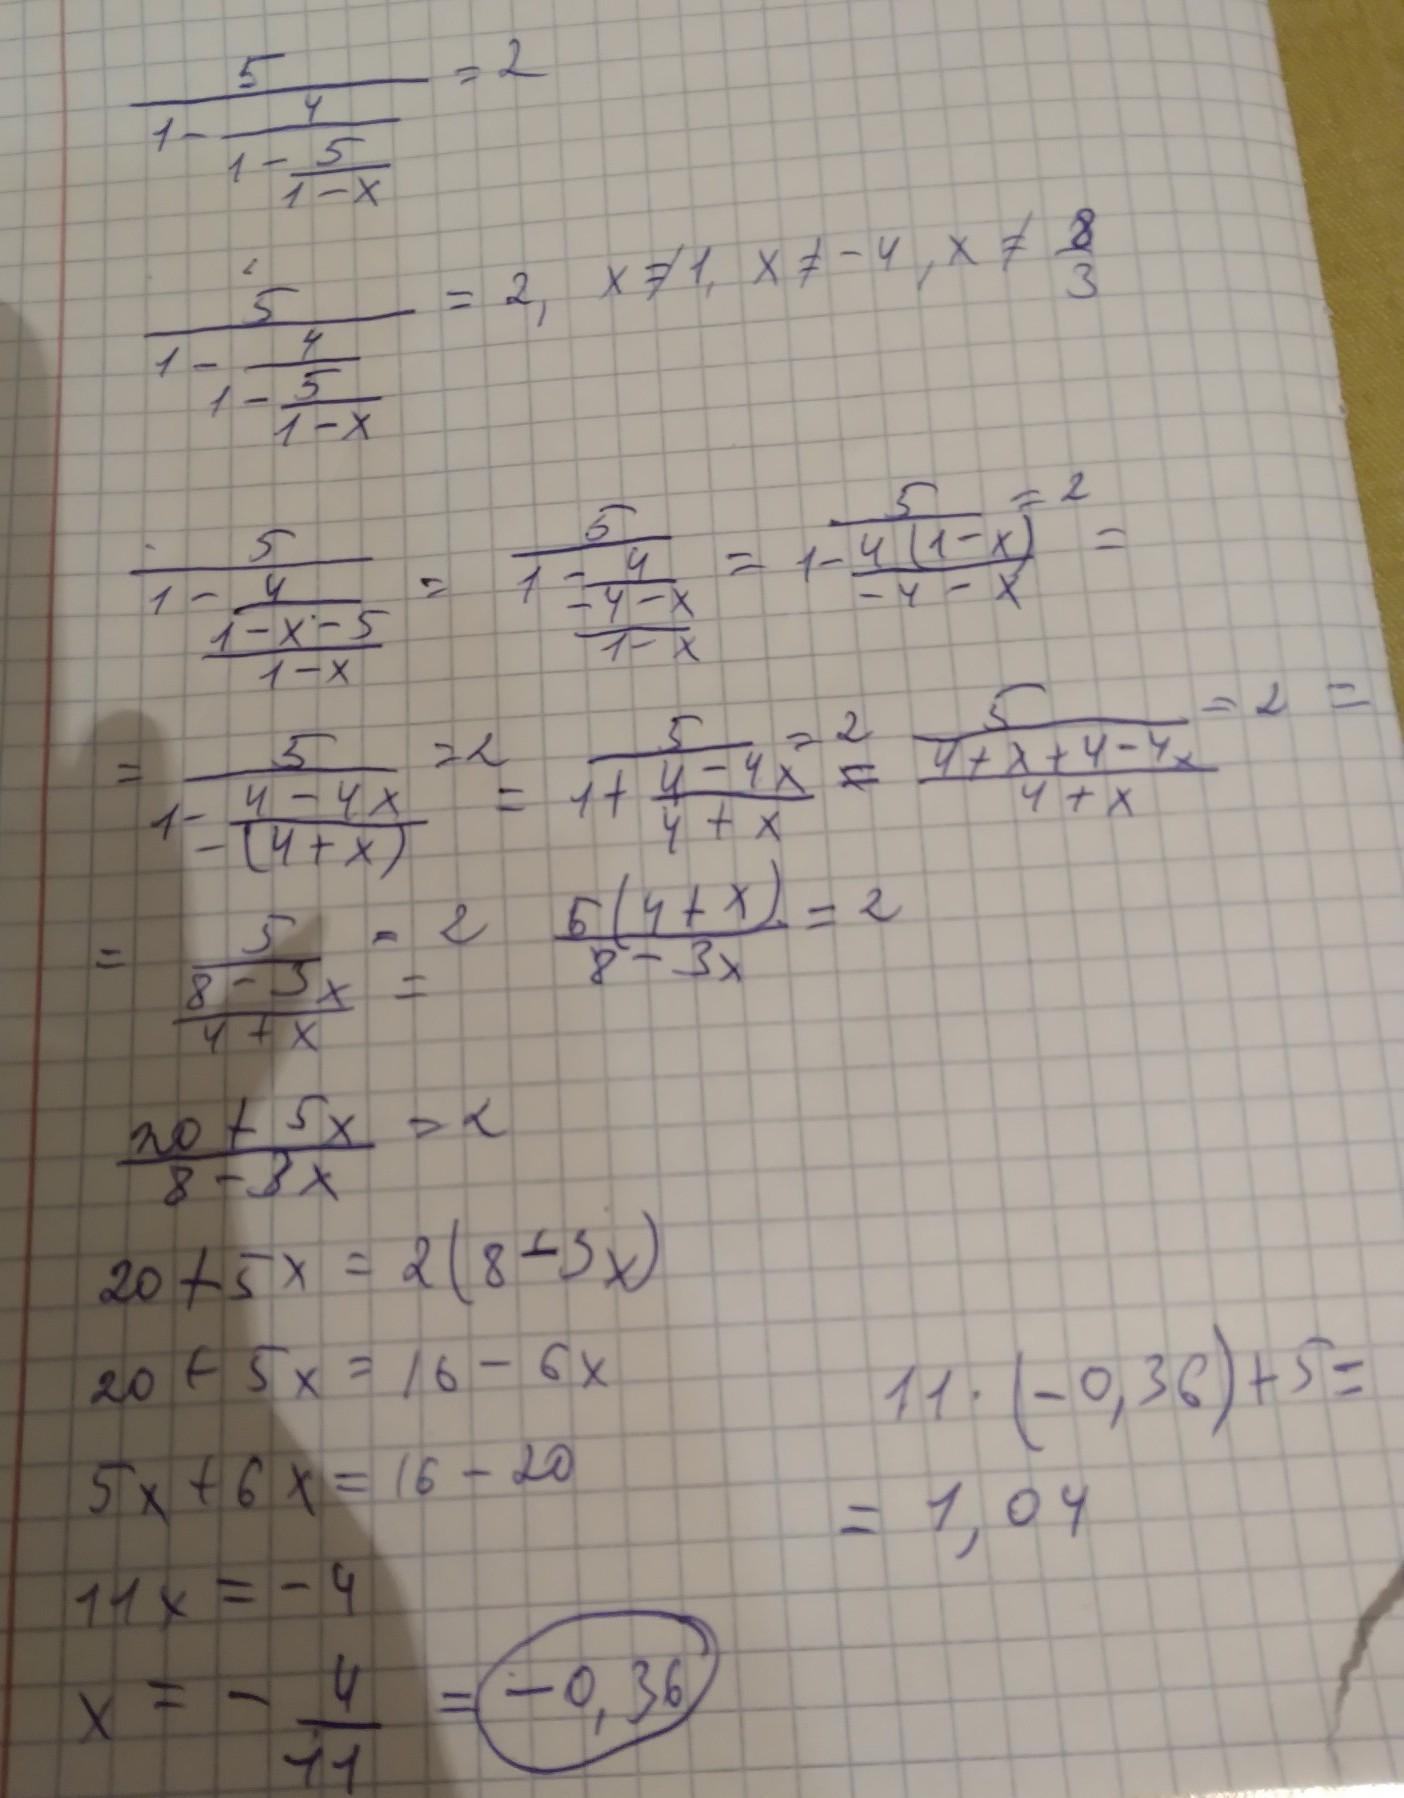 5/(1 - 4/(1 - 5/(1 - x))) = 2
5/(1 - 4/(1 - 5/(1 - x))) = 2, x ≠ 1, x ≠ -4, x ≠ 8/3
5/(1 - 4/((1 - x - 5)/(1 - x))) = 5/(1 - 4/((-4 - x)/(1 - x))) = 5/(1 - 4(1 - x)/(-4 - x)) = 2 =
= 5/(1 - (4 - 4x)/(-(4 + x))) = 2 = 5/(1 + (4 - 4x)/(4 + x)) = 2 = 5/((4 + x + 4 - 4x)/(4 + x)) = 2 =
= 5/((8 - 3x)/(4 + x)) = 2 = 5(4 + x)/(8 - 3x) = 2
(20 + 5x)/(8 - 3x) = 2
20 + 5x = 2(8 - 3x)
20 + 5x = 16 - 6x
5x + 6x = 16 - 20
11x = -4
x = - 4/11 = -0,36
11 · (-0,36) + 5 =
= 1,04